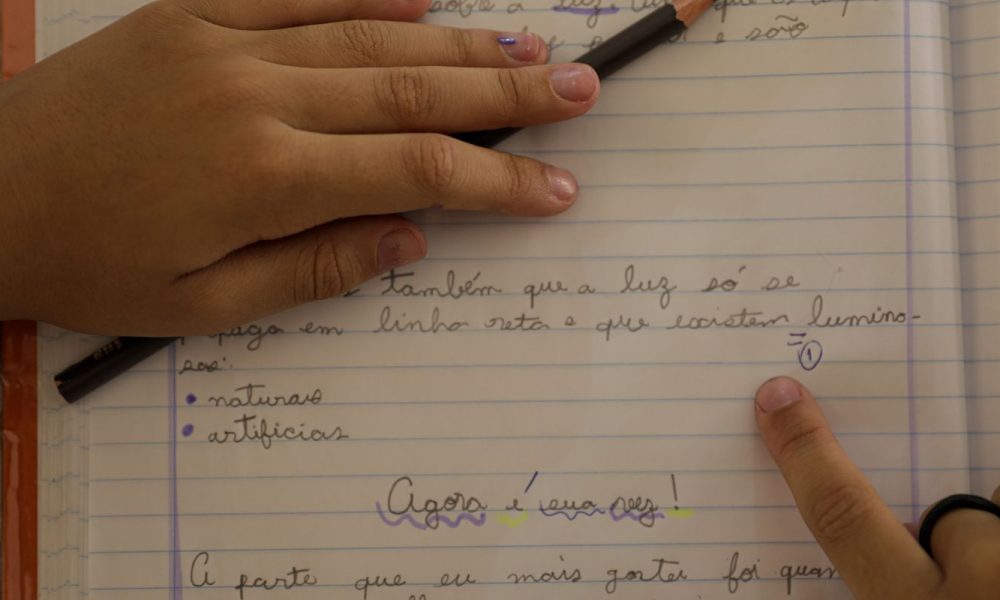 sobre a luz,
e são
também que a luz só se
em linha reta e que existem lumino-
sas:
• naturais
• artificias
①
Agora é sua vez!
A parte que eu mais gostei foi quan